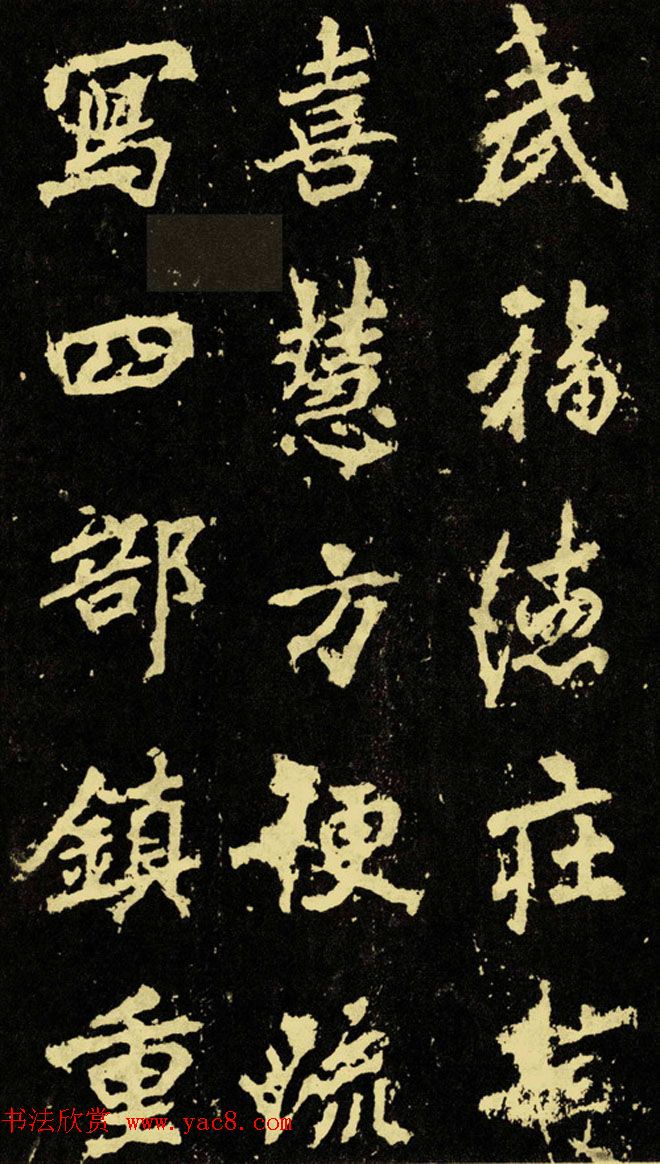 武福德庄
喜慧方
寫四部鎮重
书法欣赏 www.yac8.com